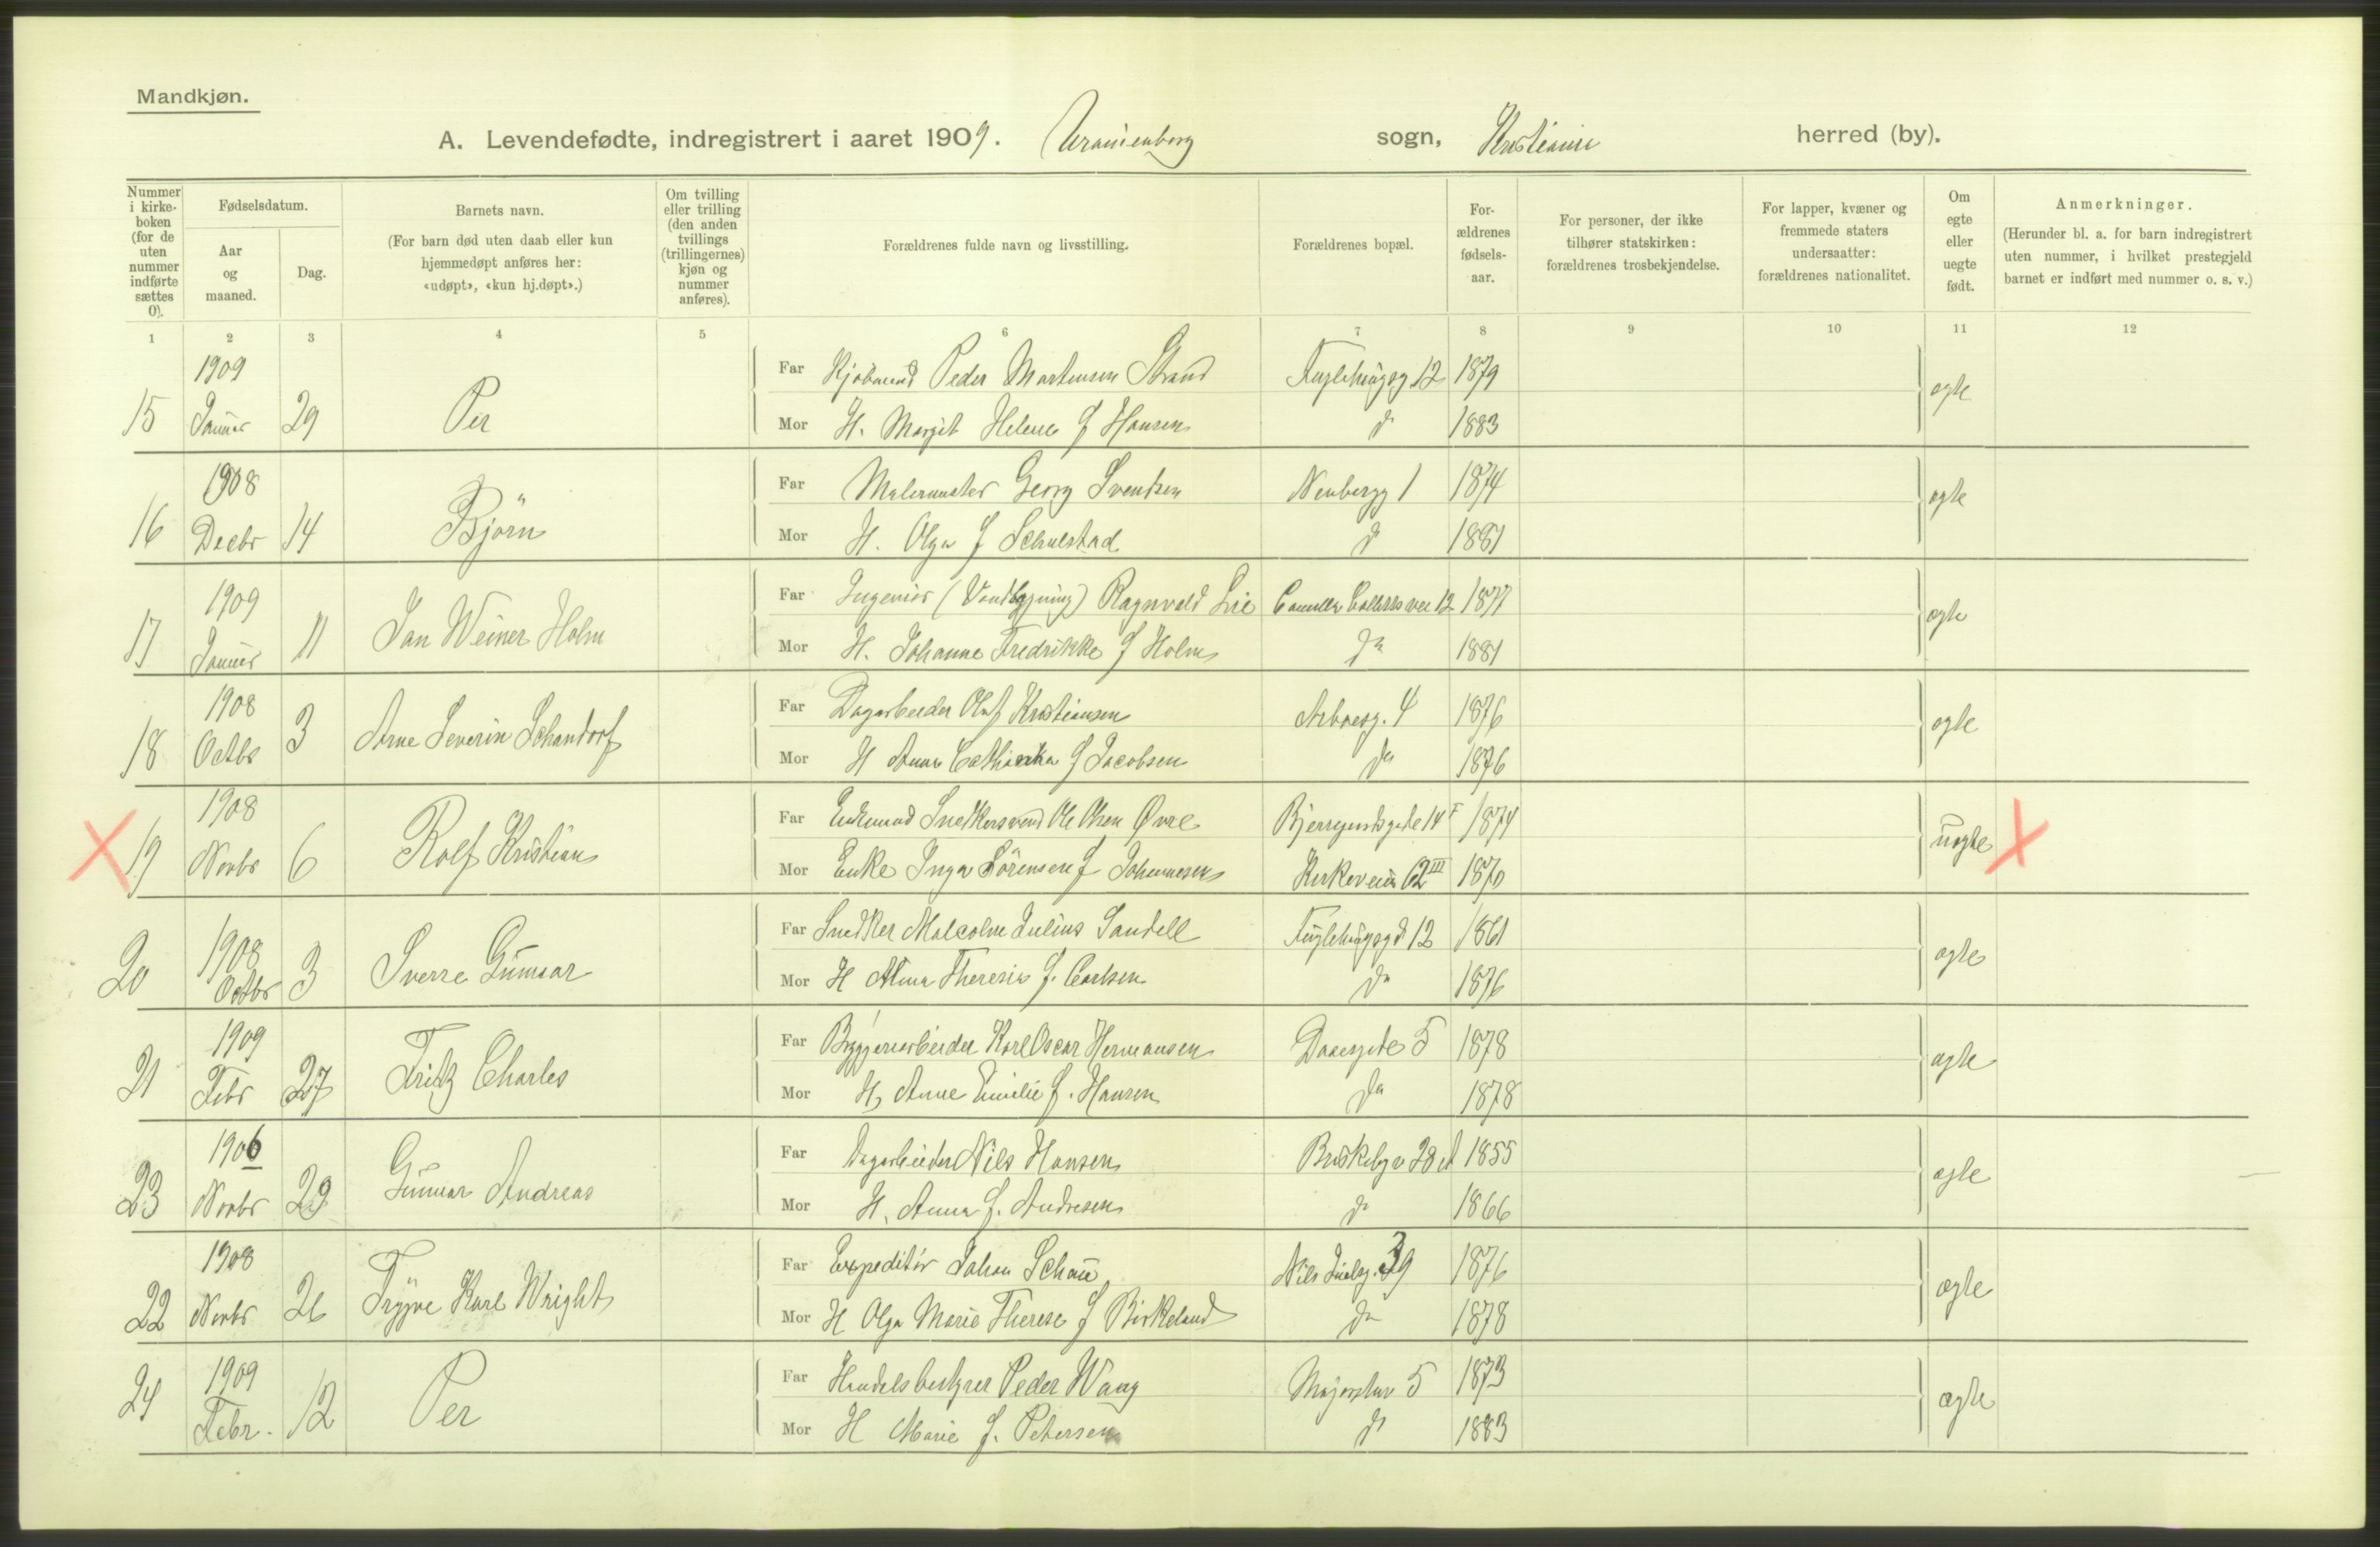 Mandkjøn.
A. Levendefødte, indregistrert i aaret 1909. Uranienborg sogn, Kristiania herred (by).
Nummer i kirke-boken (for de uten nummer indførte sættes 0).
Fødselsdatum.
Aar og maaned.
Dag.
Barnets navn.
(For barn død uten daab eller kun hjemmedøpt anføres her: «udøpt», «kun hj.døpt».)
Om tvilling eller trilling (den anden tvillings (trillingernes) kjøn og nummer anføres).
Forældrenes fulde navn og livsstilling.
Forældrenes bopæl.
For-ældrenes fødsels-aar.
For personer, der ikke tilhører statskirken: forældrenes trosbekjendelse.
For lapper, kvæner og fremmede staters undersaatter: forældrenes nationalitet.
Om egte eller uegte født.
Anmerkninger.
(Herunder bl. a. for barn indregistrert uten nummer, i hvilket prestegjeld barnet er indført med nummer o. s. v.)
1 2 3 4 5 6 7 8 9 10 11 12
1909 Far Kjøbmand Peder Martinsen Strand Fuglehaugg 12 1879
15 Januar 29 Per Mor H. Margit Helene f Hansen do 1883 ægte
1908 Far Malermester Georg Svendsen Neubergg 1 1874
16 Decbr 14 Björn Mor H. Olga f Schulstad do 1881 ægte
1909 Far Ingeniør (Vandbygning) Ragnvald Lie Camilla Colletts vei 12 1877
17 Januar 11 Jan Weiner Holm Mor H. Johanne Fredrikke f Holm do 1881 ægte
1908 Far Dagarbeider Olaf Kristiansen Arboesg. 4 1876
18 Octbr 3 Arne Severin Schandorf Mor H Anna Cathinka f Jacobsen do 1876 ægte
1908 Far Enkemand Snedkersvend Ole Olsen Øvre Bjerregaardsgade 14 I 1874
19 Novbr 6 Rolf Kristian Mor Enke Inga Sörensen f Johannesen Kirkeveien 62 III 1870 uægte
1908 Far Snedker Malcolm Julius Sandell Fuglehauggd 12 1861
20 Octbr 3 Sverre Gunnar Mor H Alma Theresia f. Carlsen do 1876 ægte
1909 Far Bryggeriarbeider Karl Oscar Hermansen Daaesgate 5 1878
21 Febr 27 Fritz Charles Mor H, Anne Emilie f. Hansen do 1878 ægte
1906 Far Dagarbeider Nils Hansen Briskebyv 28 A 1855
23 Novbr 29 Gunnar Andreas Mor H. Anna f. Andresen do 1866 ægte
1908 Far Expeditör Johan Schau Nils Juelsg. 39 1876
22 Novbr 26 Trygve Karl Wright Mor H Olga Marie Therese f Birkeland do 1878 ægte
1909 Far Handelsbestyrer Peder Wang Majorstuv 5 1873
24 Febr. 12 Per Mor H Marie f. Petersen do 1883 ægte